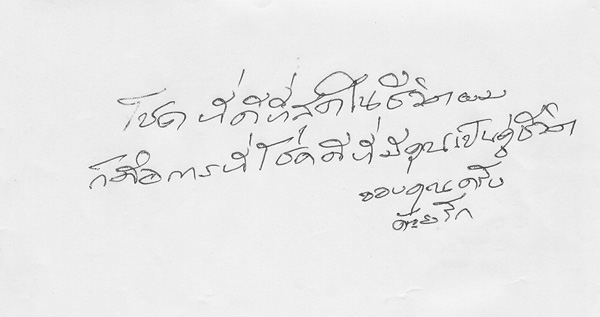 โชคที่ดีที่สุดในชีวิตผม
ก็คือการที่โชคดีที่มีคุณเป็นคู่ชีวิต
ขอบคุณครับ
ด้วยรัก